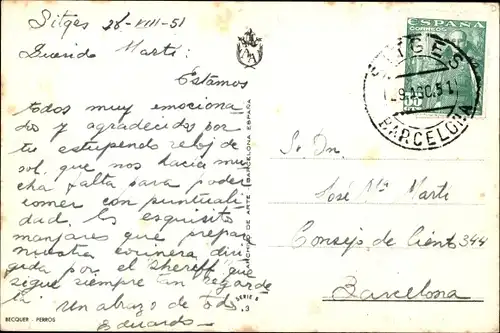 Sitges 28-VIII-51
Querido Martí:
Estamos
todos muy emociona-
dos y agradecidos por
tu estupendo reloj de
sol, que nos hacía mu-
cha falta para poder
comer con puntuali-
dad. Los esquisitos
manjares que prepara
nuestra cocinera diri-
gida por el Shereff que
sigue siempre tan
Un abrazo de todos
Eduardo
ARCHIVO DE ARTE BARCELONA ESPAÑA
SERIE 6
3
BECQUER - PERROS
ESPAÑA
CORREOS
35
CTS
SITGES
29 AGO. 51
BARCELONA
Sr. Dn.
José Mª Martí
Consejo de Ciento 344
Barcelona